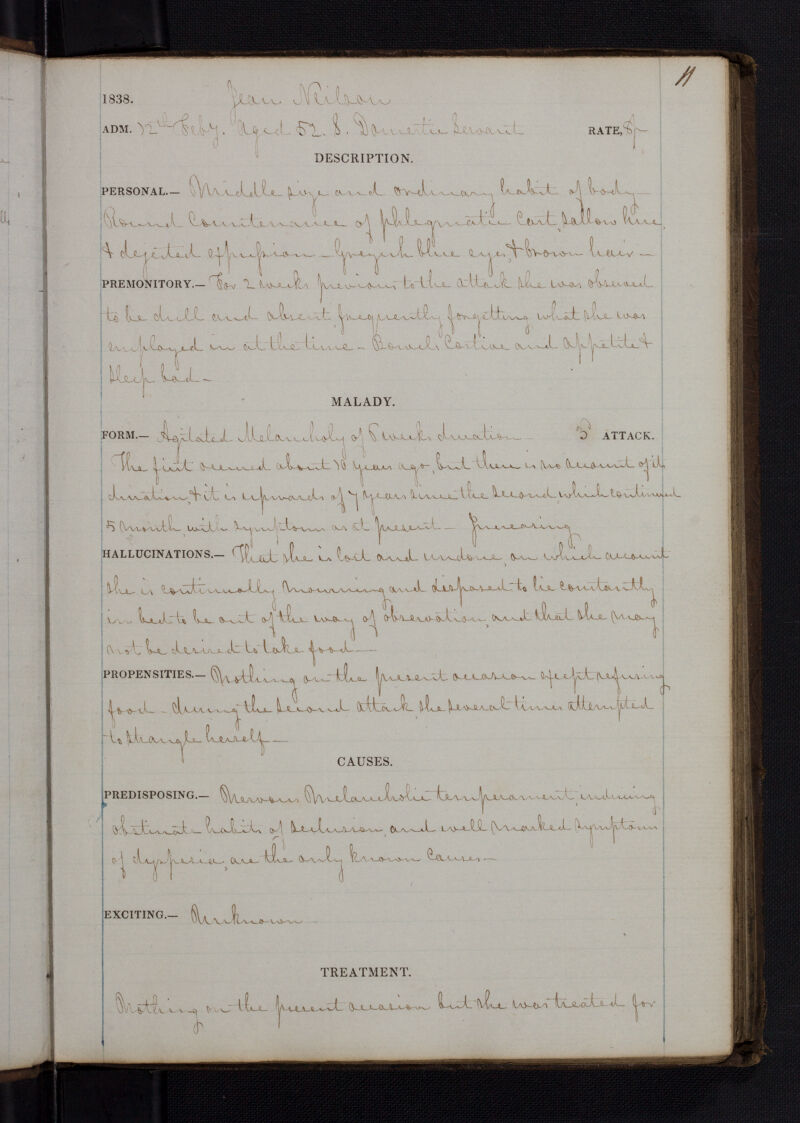 11
1838. Jean Neilson
ADM. 12th Feby. Aged 52. S. Domestic Servant RATE,
DESCRIPTION.
PERSONAL.— Middle size and ordinary habit of body —
Round Countenance of phlegmatic Cast, Sallow hue,
& dejected expression — Greyish blue eyes, & brown hair —
PREMONITORY.— For 2 weeks previous to the attack she was observed
to be dull and absent frequently forgetting what she was
employed in at the time — Bowels Costive and appetite &
sleep bad —
MALADY.
FORM.— Agitated Melancholy of 5 weeks duration 3d ATTACK.
The first occurred about 18 years ago, but there is no account of its
duration, & it is upwards of 7 years since the second, which continued
5 month with symptoms as at present — Increasing
HALLUCINATIONS.— That she is lost and undone, on which account
she is continually mourning and disposed to lie constantly
in bed to be out of the way of observation, and that she may
not be desired to take food —
PROPENSITIES.— Nothing on the present occasion except refusing
food — during the second attack she several times attempted
to strangle herself —
CAUSES.
PREDISPOSING.— Nervous Melancholic temperament, inducing
obstinate habits of seclusion, and well marked symptoms
of dyspepsia, are the only known Causes —
EXCITING.— Unknown
TREATMENT.
Nothing on the present occasion but she was treated for